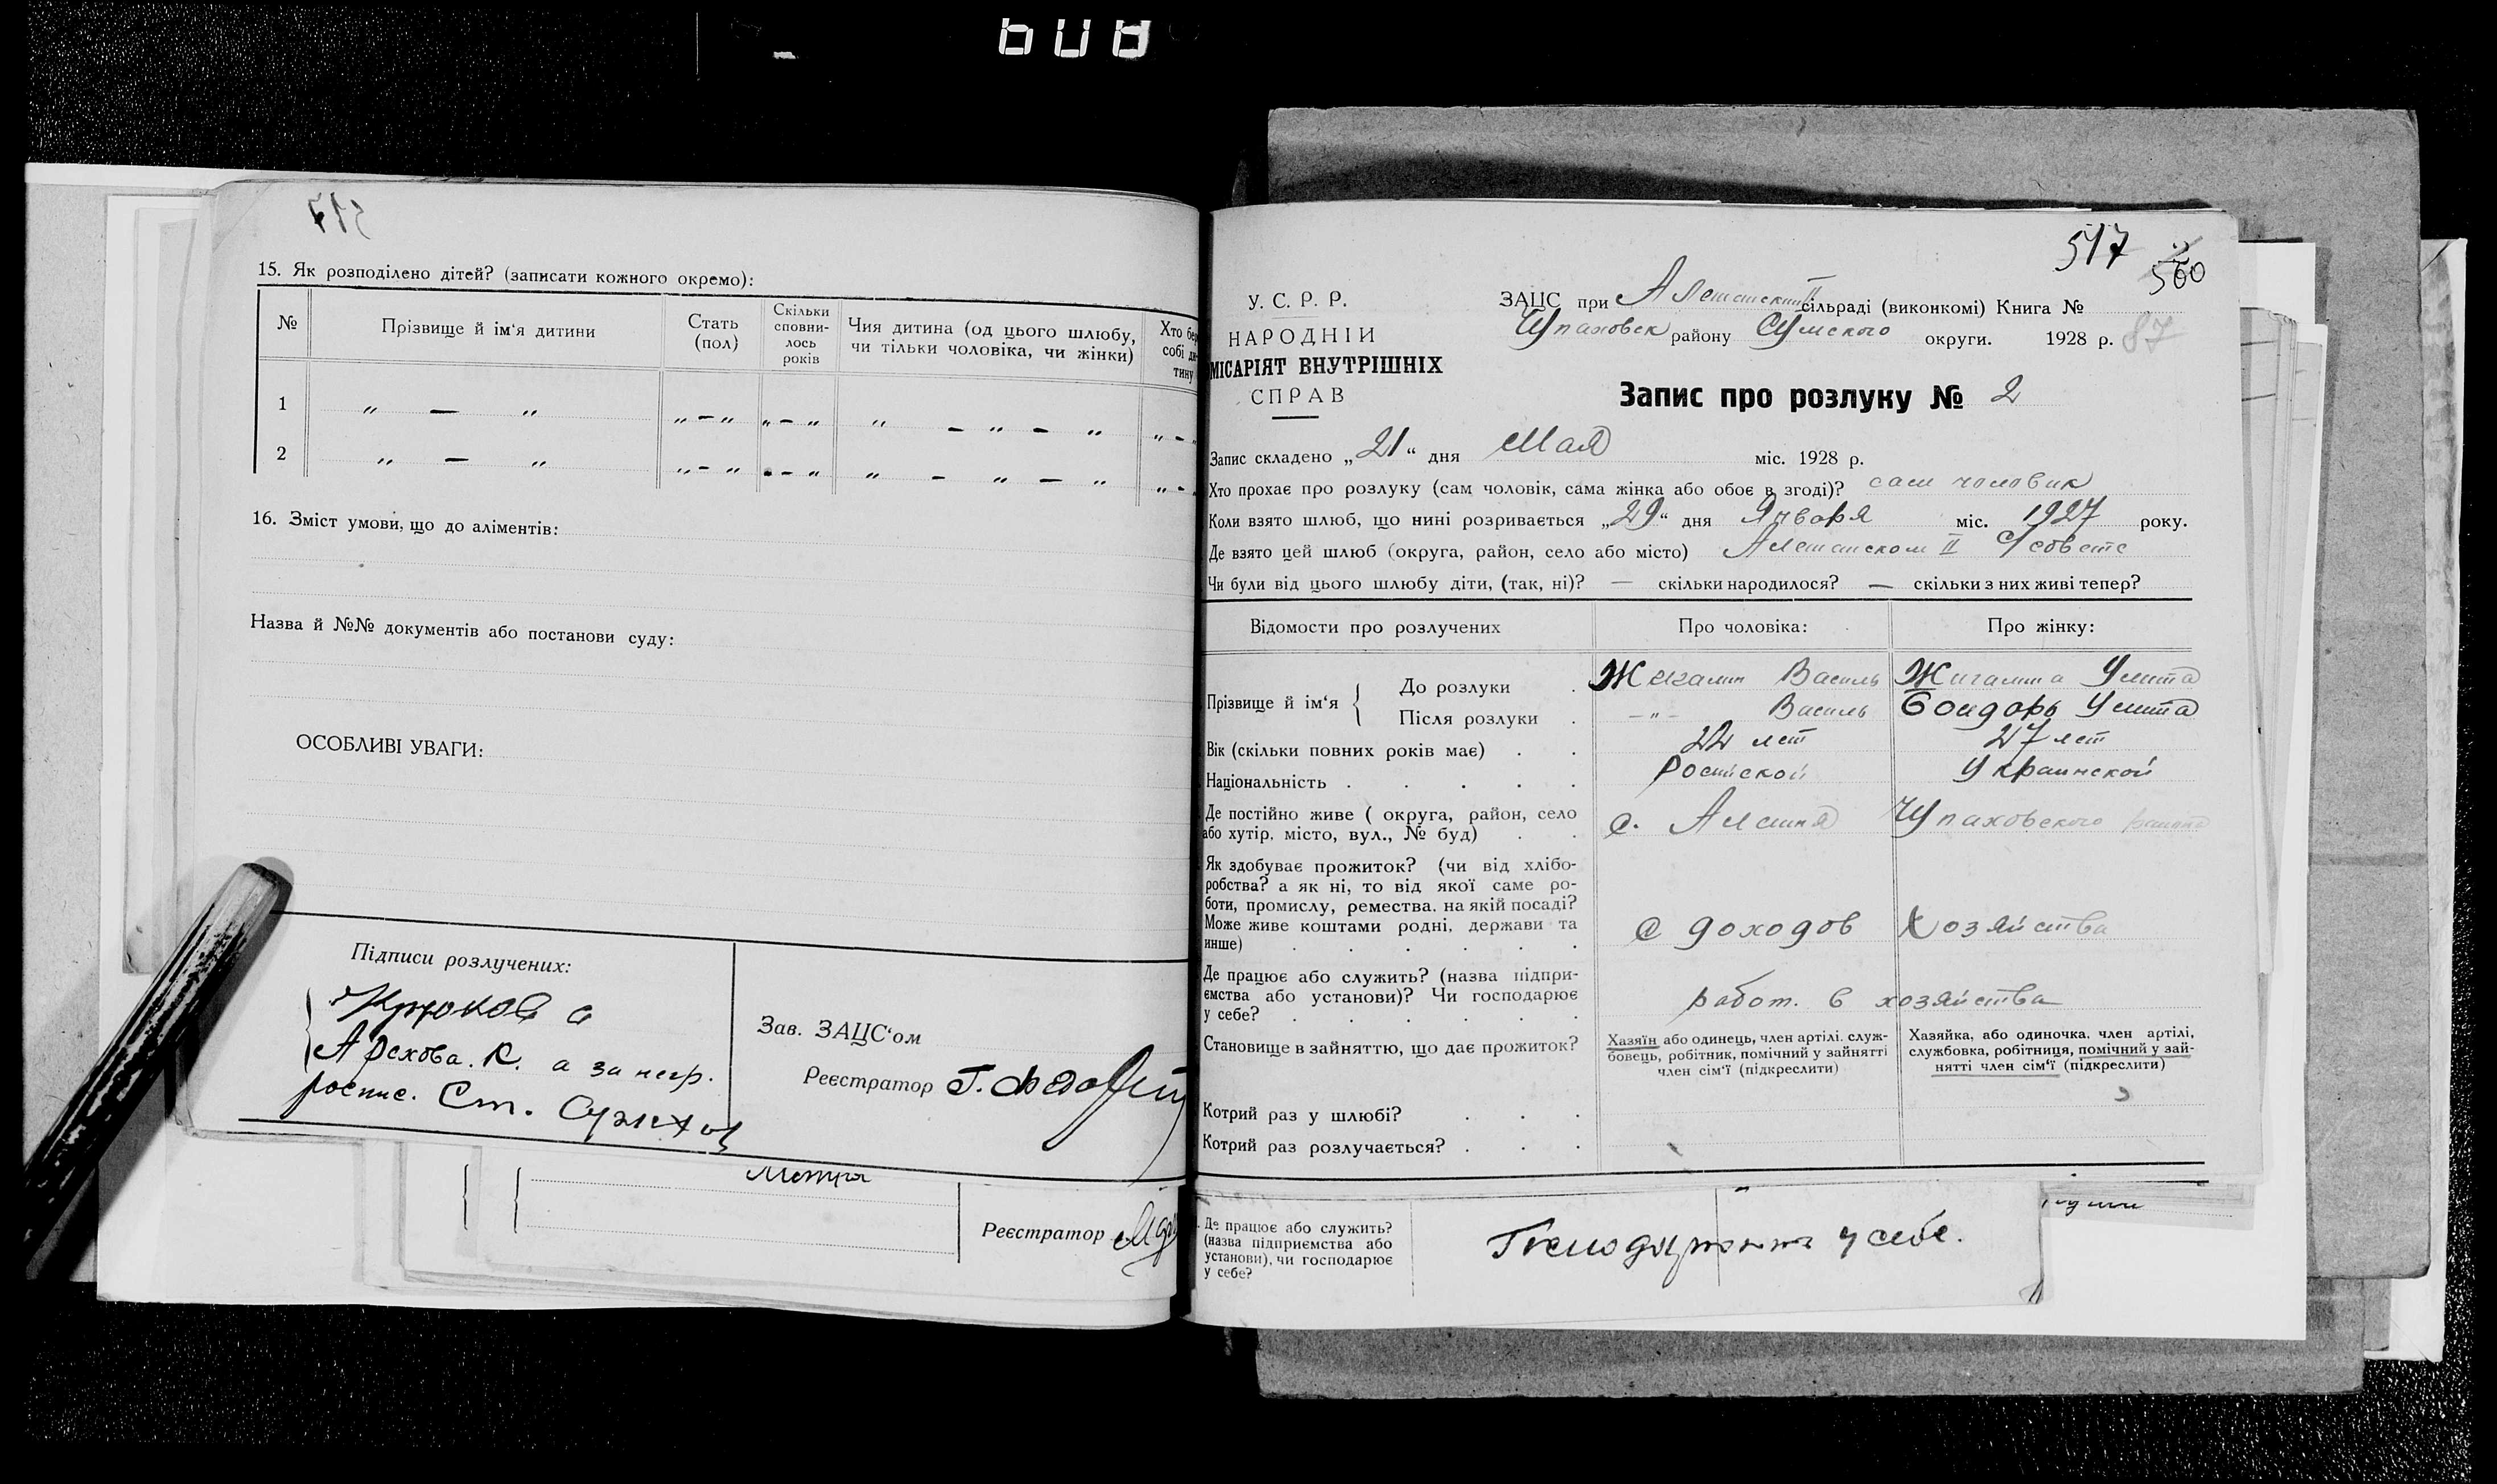 517
15. Як розподілено дітей? (записати кожного окремо):
№ Прізвище й ім‘я дитини Стать (пол) Скільки сповни- лось років Чия дитина (од цього шлюбу, чи тільки чоловіка, чи жінки) Хто бер собі ди- тину
1 „ — „ „ — „ „ — „ „ — „ — „ „ — „
2 „ — „ „ — „ „ — „ „ — „ — „ „ — „
16. Зміст умови, що до аліментів:
Назва й №№ документів або постанови суду:
ОСОБЛИВІ УВАГИ:
Підписи розлучених:
Зав. ЗАЦС‘ом
Арехова. К. а за негр.
роспис. Ст.
Реєстратор Г.
Реєстратор
517
560
У. С. Р. Р.
НАРОДНІЙ
МІСАРІЯТ ВНУТРІШНІХ
СПРАВ
ЗАЦС при Алешанский II сільраді (виконкомі) Книга №
Шпаховск району Сумского округи. 1928 р. 87
Запис про розлуку № 2
Запис складено „21“ дня Мая міс. 1928 р.
Хто прохає про розлуку (сам чоловік, сама жінка або обоє в згоді)? сам чоловик
Коли взято шлюб, що нині розривається „29“ дня Января міс. 1927 року.
Де взято цей шлюб (округа, район, село або місто) Алешанском II С/совете
Чи були від цього шлюбу діти, (так, ні)? — скільки народилося? — скільки з них живі тепер?
Відомости про розлучених Про чоловіка: Про жінку:
Прізвище й ім‘я { До розлуки . Василь Жигалина Улита
Після розлуки . —„— Василь Бондарь Улита
Вік (скільки повних років має) . . 22 лет 27 лет
Національність . . . . . Росийской Украинской
Де постійно живе ( округа, район, село
або хутір, місто, вул., № буд) . . с. Алешня Шпаховского района
Як здобуває прожиток? (чи від хлібо-
робства? а як ні, то від якої саме ро-
боти, промислу, ремества. на якій посаді?
Може живе коштами родні, держави та
инше) . . . . . . с доходов Хозяйства
Де працює або служить? (назва підпри-
ємства або установи)? Чи господарює
у себе? . . . . . . работ. в хозяйства
Становище в зайняттю, що дає прожиток?
Хазяїн або одинець, член артілі. служ-
бовець, робітник, помічний у зайнятті
член сім‘ї (підкреслити)
Хазяйка, або одиночка, член артілі,
службовка, робітниця, помічний у зай-
нятті член сім‘ї (підкреслити)
Котрий раз у шлюбі? . . .
Котрий раз розлучається? . . .
Де працює або служить?
(назва підприємства або
установи), чи господарює
у себе?
у себе.